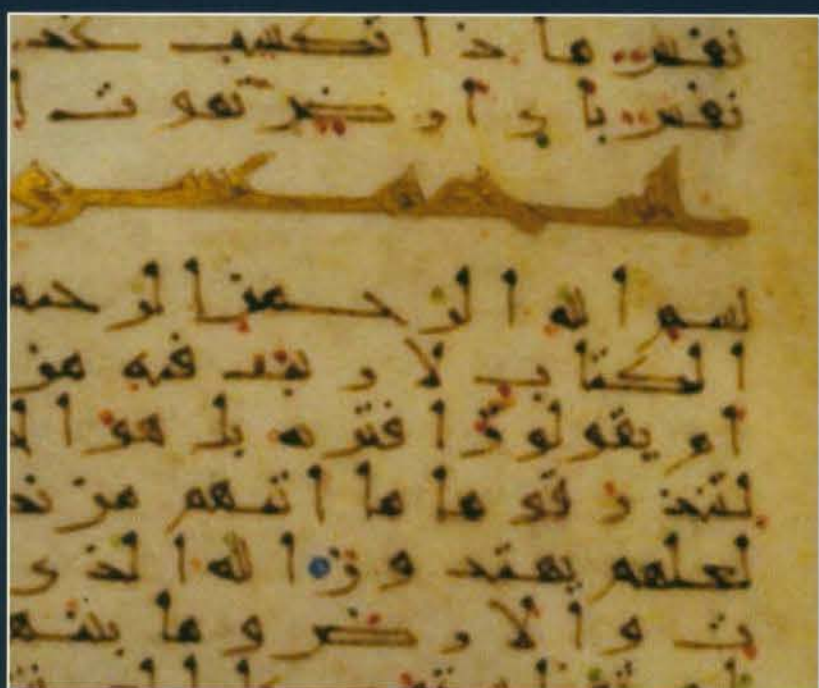 نفس ما ذا تكسب غد
نفس باي ارض تموت ا
بسم الله الرحمن الرحيم
الكتاب لا ريب فيه من
ام يقولون افتريه بل هو ا
لتنذر قوما ما اتيهم من نذ
لعلهم يهتدون الله الذي
ت والارض وما بينهم